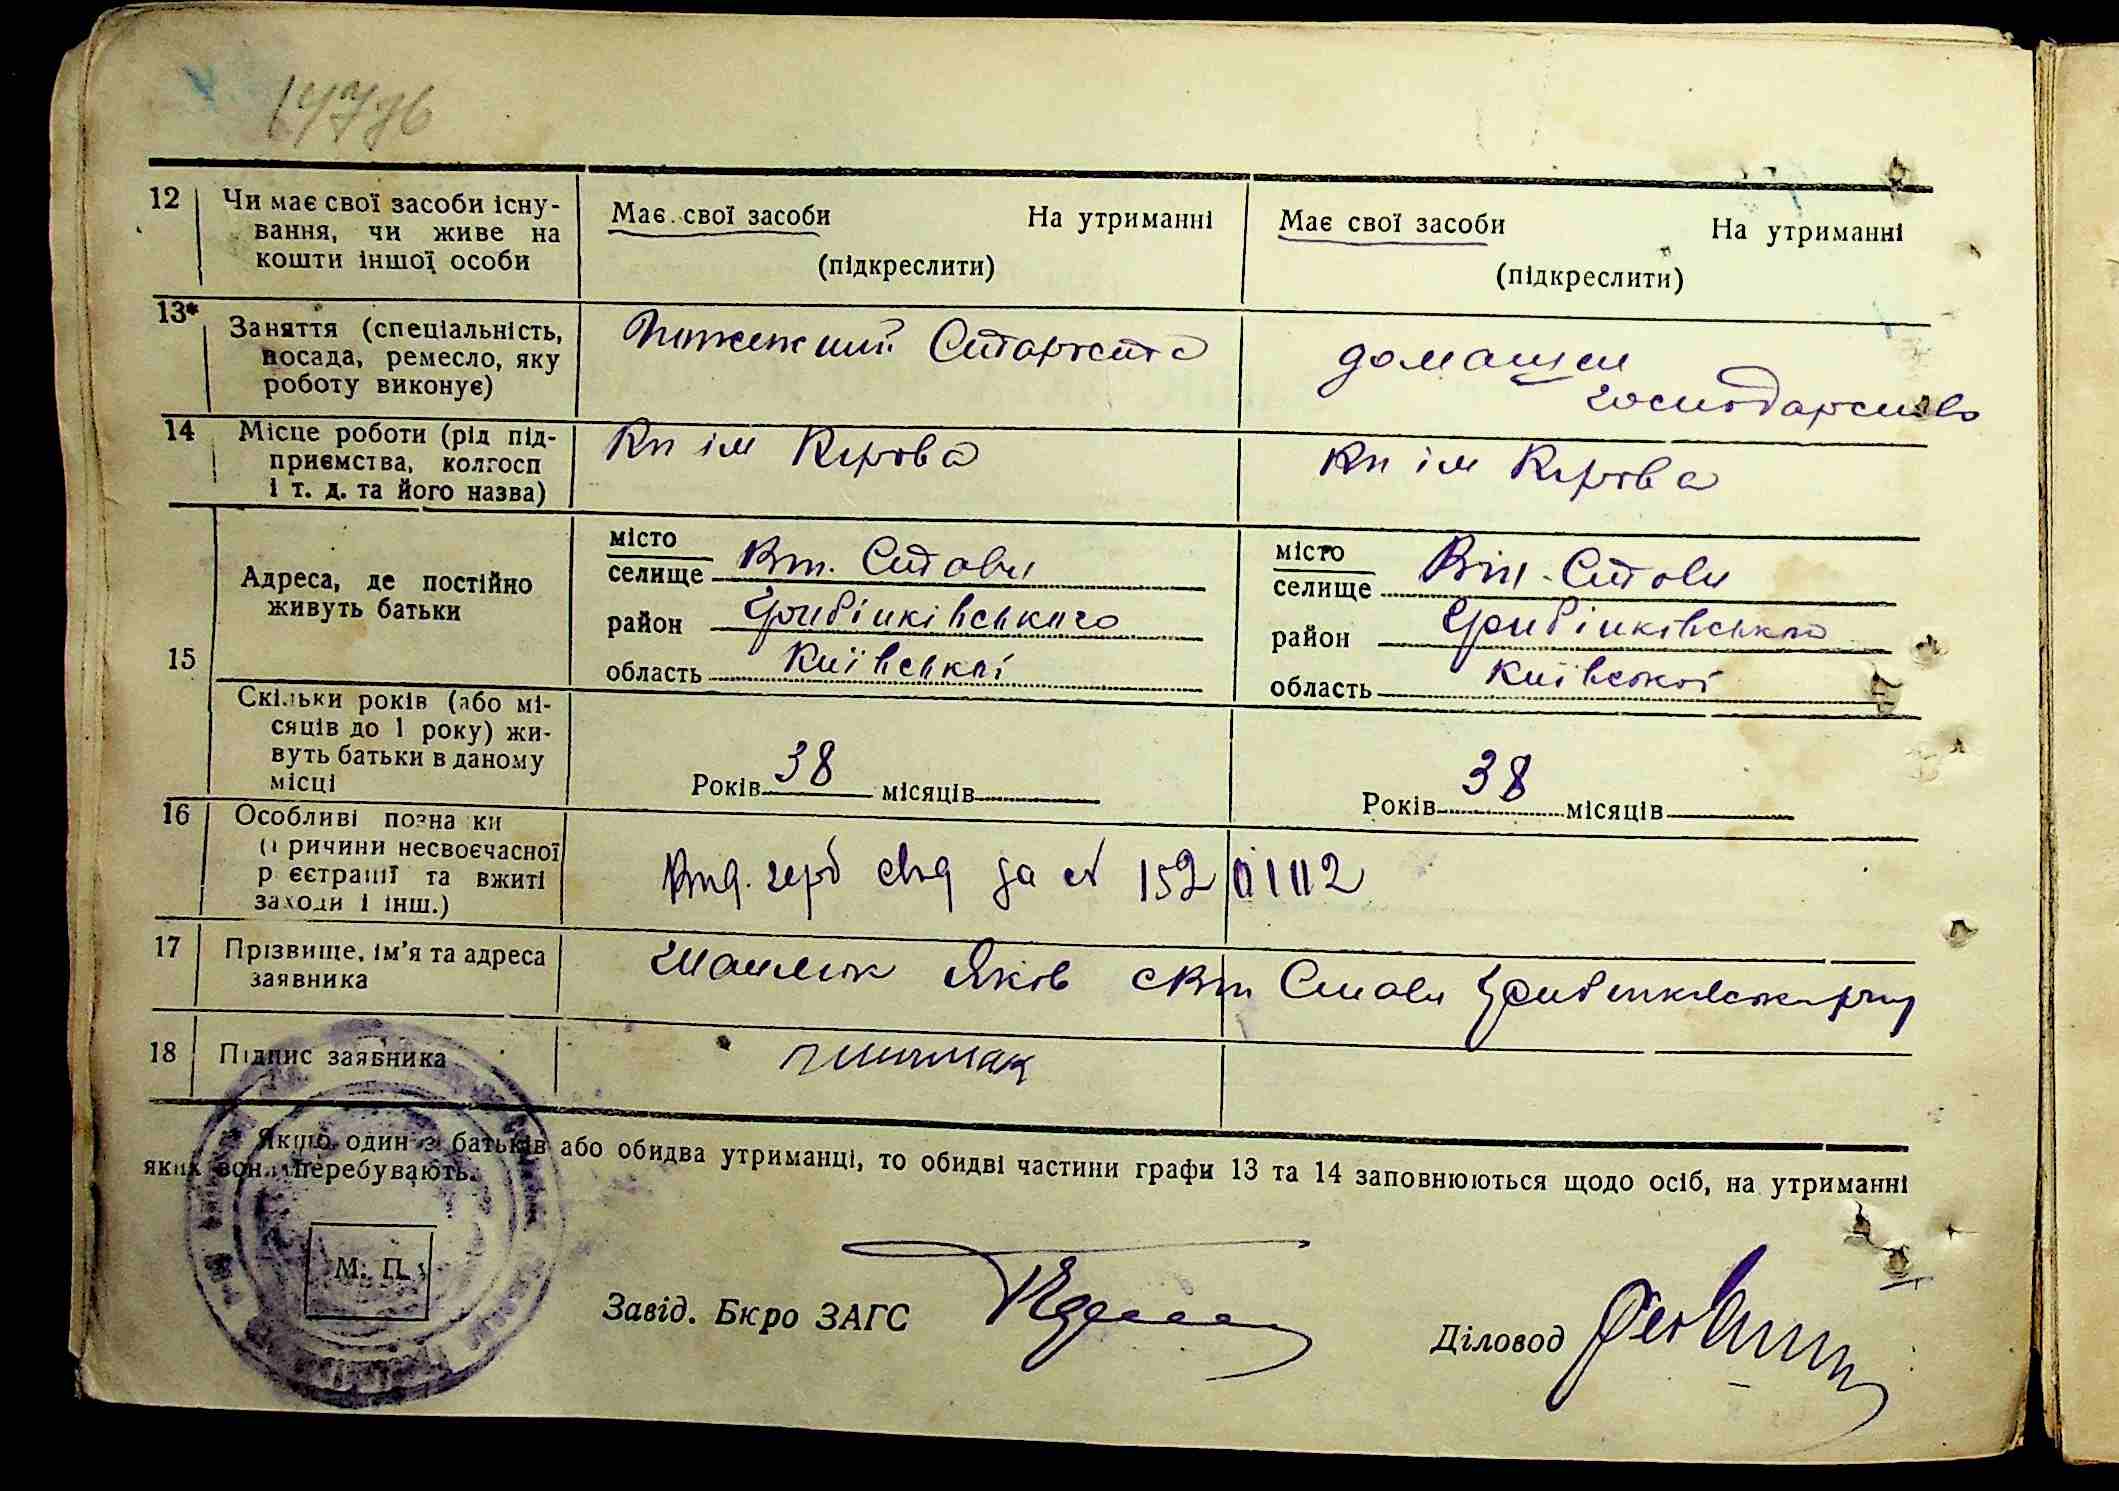 12 Чи має свої засоби існу-
вання, чи живе на
кошти іншої особи
Має свої засоби На утриманні
(підкреслити)
Має свої засоби На утриманні
(підкреслити)
13* Заняття (спеціальність,
посада, ремесло, яку
роботу виконує)
домашнє
господарство
14 Місце роботи (рід під-
приємства, колгосп
і т. д. та його назва)
Кп ім Кірова
Кп ім Кірова
15
Адреса, де постійно
живуть батьки
місто
селище Вт. Стави
район Гребінківського
область Київської
місто
селище Вт. Стави
район Гребінківського
область Київської
Скільки років (або мі-
сяців до 1 року) жи-
вуть батьки в даному
місці
Років 38 місяців
Років 38 місяців
16 Особливі познаки
(причини несвоєчасної
реєстрації та вжиті
заходи і інш.)
Вид. герб свід за №
17 Прізвище, ім'я та адреса
заявника
Яків с Вт Стави
18 Підпис заявника
Якщо один з батьків або обидва утриманці, то обидві частини графи 13 та 14 заповнюються щодо осіб, на утриманні
яких вони перебувають.
М. П.
Завід. Бюро ЗАГС
Діловод